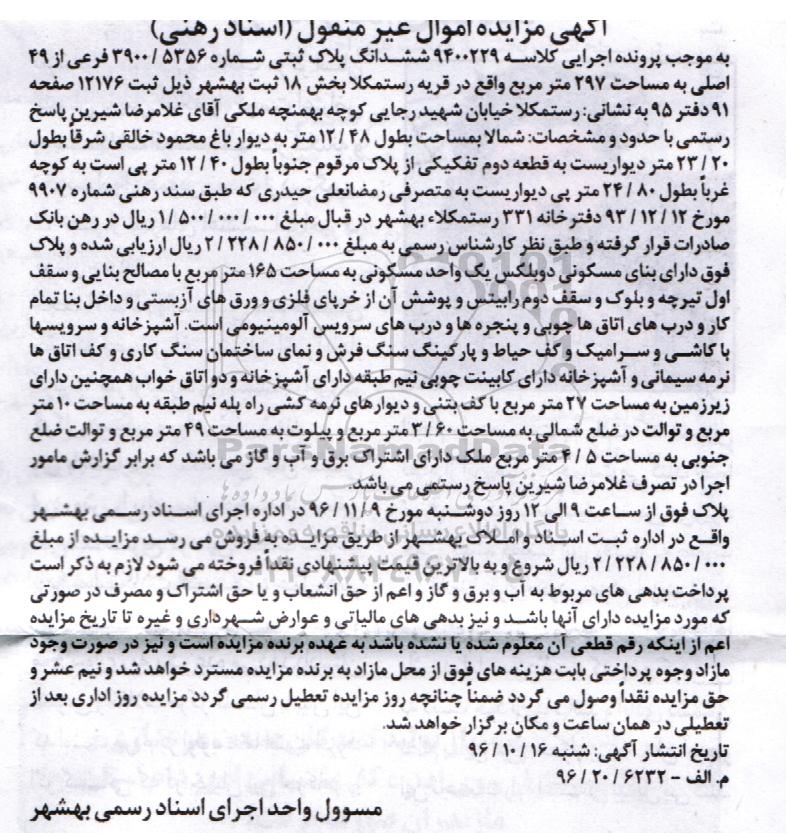 آگهی مزایده اموال غیر منقول (اسناد رهنی)
به موجب پرونده اجرایی کلاسه ۹۴۰۰۲۲۹ ششدانگ پلاک ثبتی شماره ۵۳۵۶ / ۳۹۰۰ فرعی از ۴۹
اصلی به مساحت ۲۹۷ متر مربع واقع در قریه رستمکلا بخش ۱۸ ثبت بهشهر ذیل ثبت ۱۲۱۷۶ صفحه
۹۱ دفتر ۹۵ به نشانی: رستمکلا خیابان شهید رجایی کوچه بهسنجه ملکی آقای غلامرضا شیرین پاسخ
رستمی با حدود و مشخصات: شمالا بمساحت بطول ۴۸ / ۱۲ متر به دیوار باغ محمود خالقی شرقا بطول
۲۰ / ۲۳ متر دیواریست به قطعه دوم تفکیکی از پلاک مرقوم جنوبا بطول ۴۰ / ۱۲ متر پی است به کوچه
غربا بطول ۸۰ / ۲۴ متر پی دیواریست به متصرفی رمضانعلی حیدری که طبق سند رهنی شماره ۹۹۰۷
مورخ ۱۲ / ۱۲ / ۹۳ دفترخانه ۳۳۱ رستمکلاء بهشهر در قبال مبلغ ۰۰۰ / ۰۰۰ / ۵۰۰ / ۱ ریال در رهن بانک
صادرات قرار گرفته و طبق نظر کارشناس رسمی به مبلغ ۰۰۰ / ۸۵۰ / ۲۲۸ / ۲ ریال ارزیابی شده و پلاک
فوق دارای بنای مسکونی دوبلکس یک واحد مسکونی به مساحت ۱۶۵ متر مربع با مصالح بنایی و سقف
اول تیرچه و بلوک و سقف دوم رابیتس و پوشش آن از خرپای فلزی و ورق های آزبستی و داخل بنا تمام
کار و درب های اتاق ها چوبی و پنجره ها و درب های سرویس آلومینیومی است. آشپزخانه و سرویسها
با کاشی و سرامیک و کف حیاط و پارکینگ سنگ فرش و نمای ساختمان سنگ کاری و کف اتاق ها
نرمه سیمانی و آشپزخانه دارای کابینت چوبی نیم طبقه دارای آشپزخانه و دو اتاق خواب همچنین دارای
زیرزمین به مساحت ۲۷ متر مربع با کف بتنی و دیوارهای نرمه کشی راه پله نیم طبقه به مساحت ۱۰ متر
مربع و توالت در ضلع شمالی به مساحت ۶۰ / ۳ متر مربع و پیلوت به مساحت ۴۹ متر مربع و توالت ضلع
جنوبی به مساحت ۵ / ۴ متر مربع ملک دارای اشتراک برق و آب و گاز می باشد که برابر گزارش مامور
اجرا در تصرف غلامرضا شیرین پاسخ رستمی می باشد.
پلاک فوق از ساعت ۹ الی ۱۲ روز دوشنبه مورخ ۹ / ۱۱ / ۹۶ در اداره اجرای اسناد رسمی بهشهر
واقع در اداره ثبت اسناد و املاک بهشهر از طریق مزایده به فروش می رسد مزایده از مبلغ
۰۰۰ / ۸۵۰ / ۲۲۸ / ۲ ریال شروع و به بالاترین قیمت پیشنهادی نقدا فروخته می شود لازم به ذکر است
پرداخت بدهی های مربوط به آب و برق و گاز و اعم از حق انشعاب و یا حق اشتراک و مصرف در صورتی
که مورد مزایده دارای آنها باشد و نیز بدهی های مالیاتی و عوارض شهرداری و غیره تا تاریخ مزایده
اعم از اینکه رقم قطعی آن معلوم شده یا نشده باشد به عهده برنده مزایده است و نیز در صورت وجود
مازاد وجوه پرداختی بابت هزینه های فوق از محل مازاد به برنده مزایده مسترد خواهد شد و نیم عشر و
حق مزایده نقداً وصول می گردد ضمناً چنانچه روز مزایده تعطیل رسمی گردد مزایده روز اداری بعد از
تعطیلی در همان ساعت و مکان برگزار خواهد شد.
تاریخ انتشار آگهی: شنبه ۱۶ / ۱۰ / ۹۶
م. الف - ۶۲۳۲ / ۲۰ / ۹۶
مسوول واحد اجرای اسناد رسمی بهشهر
ParsNamadData